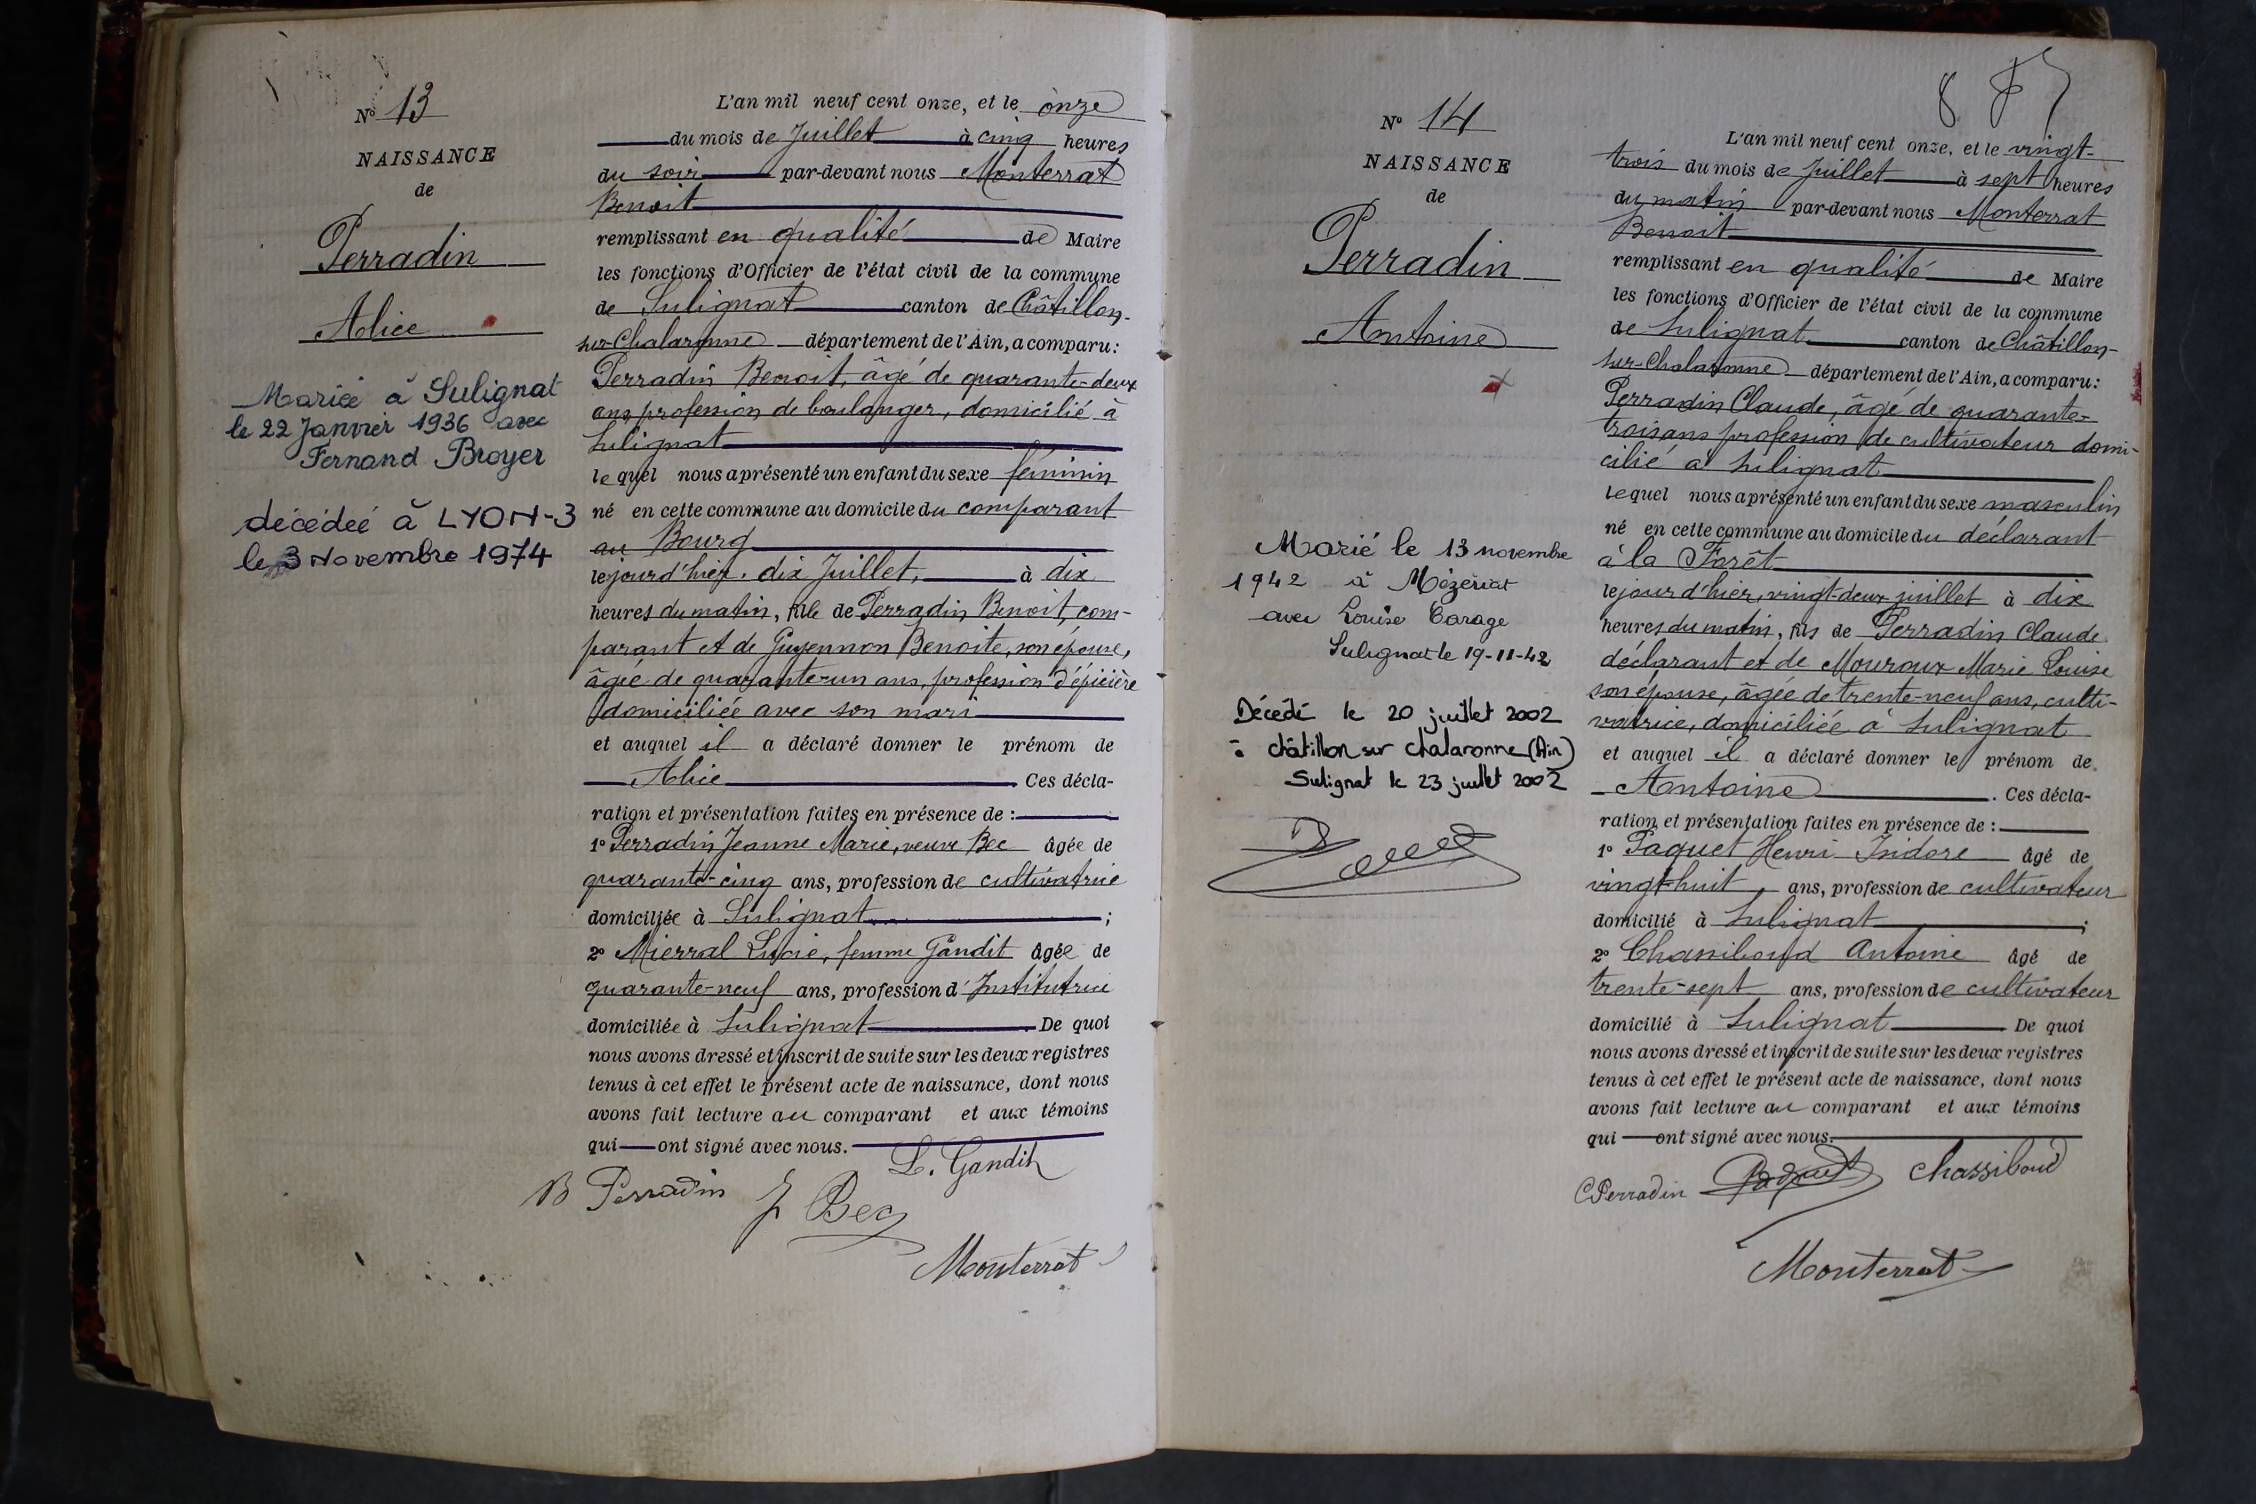 N° 13
NAISSANCE
de
Perradin
Alice
Mariée à Sulignat
le 22 Janvier 1936 avec
Fernand Broyer
décédée à LYON-3
le 3 Novembre 1974
L'an mil neuf cent onze, et le onze
du mois de Juillet à cinq heures
du soir par-devant nous Monterrat
Benoit
remplissant en qualité de Maire
les fonctions d'Officier de l'état civil de la commune
de Sulignat canton de Châtillon-
sur-Chalaronne département de l'Ain, a comparu:
Perradin Benoit, âgé de quarante-deux
ans, profession de boulanger, domicilié à
Sulignat
lequel nous a présenté un enfant du sexe féminin
né en cette commune au domicile du comparant
au Bourg
le jour d'hier, dix Juillet, à dix
heures du matin, fille de Perradin Benoit, com-
parant et de Guyennon Benoite, son épouse,
âgée de quarante-un ans, profession d'épicière
domiciliée avec son mari
et auquel il a déclaré donner le prénom de
Alice. Ces décla-
ration et présentation faites en présence de :
1° Perradin Jeanne Marie, veuve Bec âgée de
quarante-cinq ans, profession de cultivatrice
domiciliée à Sulignat ;
2° Mierral Lucie, femme Gandit âgée de
quarante-neuf ans, profession d'Institutrice
domiciliée à Sulignat. De quoi
nous avons dressé et inscrit de suite sur les deux registres
tenus à cet effet le présent acte de naissance, dont nous
avons fait lecture au comparant et aux témoins
qui ont signé avec nous.
L. Gandit
B Perradin J Bec
Monterrat
8
N° 14
NAISSANCE
de
Perradin
Antoine
Marié le 13 novembre
1942 à Mézériat
avec Louise Carage
Sulignat le 19-11-42
Décédé le 20 juillet 2002
à châtillon sur chalaronne (Ain)
Sulignat le 23 juillet 2002
L'an mil neuf cent onze, et le vingt-
trois du mois de Juillet à sept heures
du matin par-devant nous Monterrat
Benoit
remplissant en qualité de Maire
les fonctions d'Officier de l'état civil de la commune
de Sulignat canton de Châtillon-
sur-Chalaronne département de l'Ain, a comparu:
Perradin Claude, âgé de quarante-
trois ans profession de cultivateur domi-
cilié à Sulignat
lequel nous a présenté un enfant du sexe masculin
né en cette commune au domicile du déclarant
à la Forêt
le jour d'hier, vingt-deux juillet à dix
heures du matin, fils de Perradin Claude
déclarant et de Mouroux Marie Louise
son épouse, âgée de trente-neuf ans, culti-
vatrice, domiciliée à Sulignat
et auquel il a déclaré donner le prénom de
Antoine. Ces décla-
ration et présentation faites en présence de :
1° Paquet Henri Isidore âgé de
vingt-huit ans, profession de cultivateur
domicilié à Sulignat ;
2° Chassiboud Antoine âgé de
trente-sept ans, profession de cultivateur
domicilié à Sulignat De quoi
nous avons dressé et inscrit de suite sur les deux registres
tenus à cet effet le présent acte de naissance, dont nous
avons fait lecture au comparant et aux témoins
qui ont signé avec nous.
C Perradin Paquet Chassiboud
Monterrat